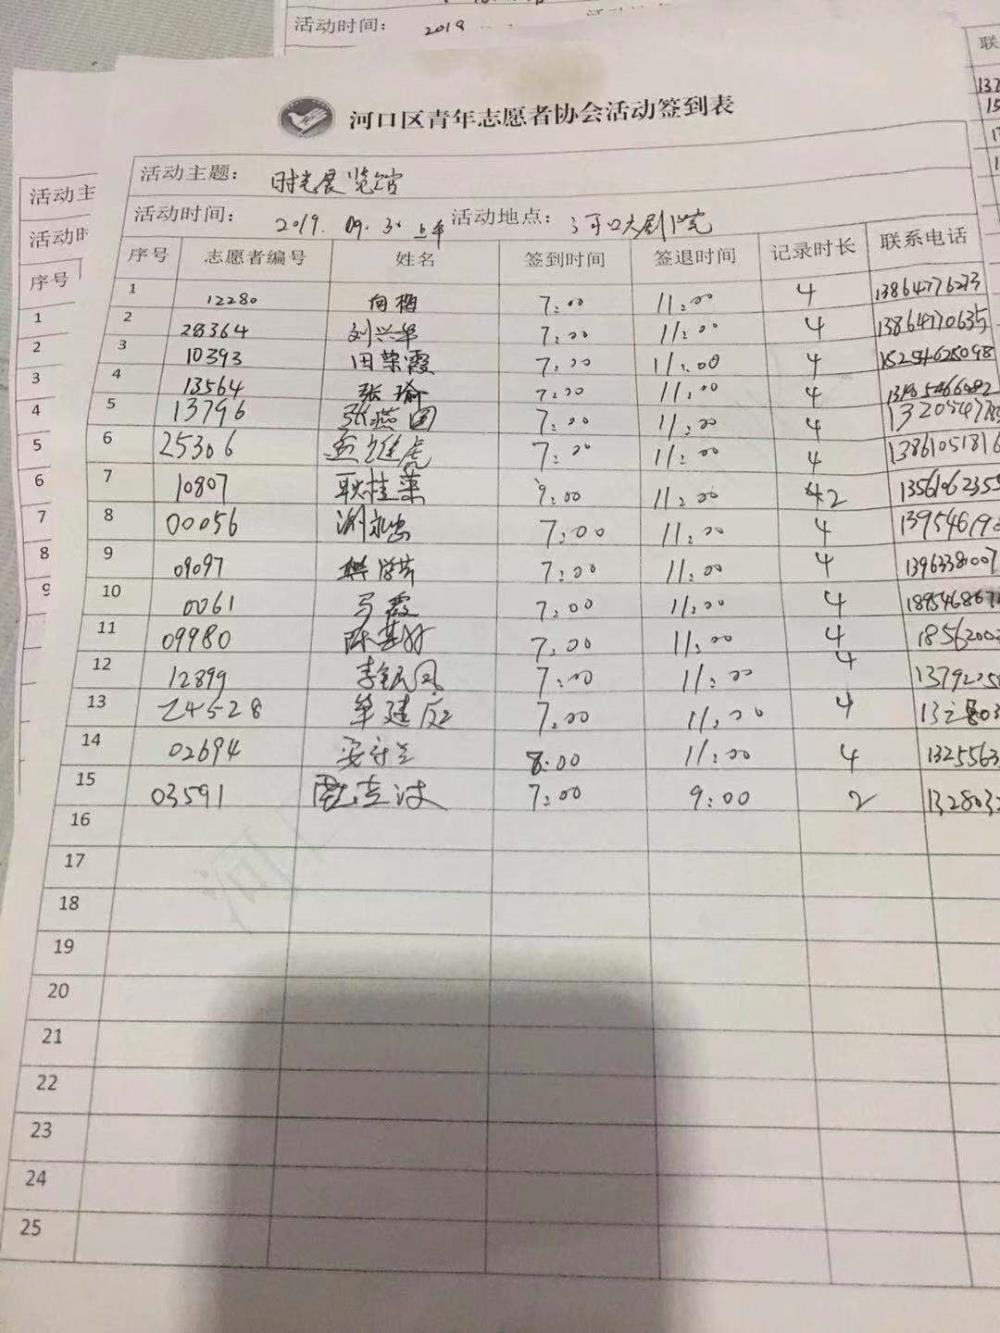 活动时间： 2019
联
河口区青年志愿者协会活动签到表
活动主题： 时光展览馆
活动时间： 2019. 09. 30 上午 活动地点： 河口大剧院
序号 志愿者编号 姓名 签到时间 签退时间 记录时长 联系电话
1 12280 7:00 11:00 4 13864776273
2 28364 刘兴华 7:00 11:00 4 13864770635
3 10393 田荣霞 7:00 11:00 4 15254625098
4 13564 张瑜 7:00 11:00 4
5 13796 张燕国 7:00 11:00 4
6 25306 孟维虎 7:00 11:00 4 1386105181
7 10807 耿桂菜 9:00 11:00 2 1356106235
8 00056 7:00 11:00 4 139546
9 09097 7:00 11:00 4 1396338007
10 0061 马霞 7:00 11:00 4
11 09980 陈其好 7:00 11:00 4 1856200
12 12899 李银凤 7:00 11:00 4
13 24528 单建庆 7:00 11:00 4
14 02694 安守兰 8:00 11:00 4 1325563
15 03591 7:00 9:00 2 132803
16
17
18
19
20
21
22
23
24
25
活动主
活动时
序号
1
2
3
4
5
6
7
8
9